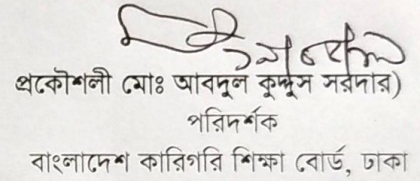 প্রকৌশলী মোঃ আবদুল কুদ্দুস সরদার)
পরিদর্শক
বাংলাদেশ কারিগরি শিক্ষা বোর্ড, ঢাকা